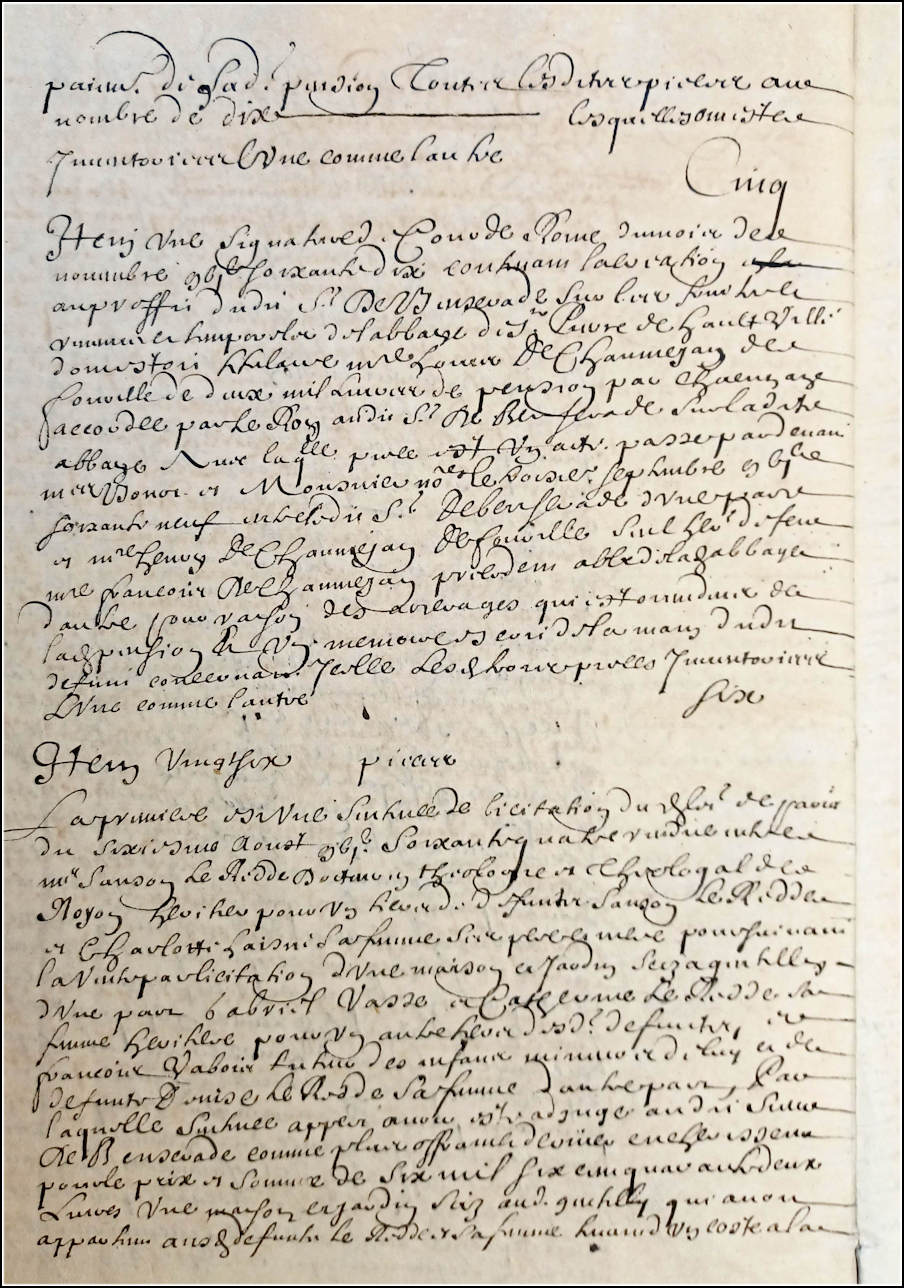 paiem.t de lad.t pension Toutes lesdites pieces au
nombre de dix lesquelles ont esté
Inventoriees L'une comme l'autre
Cinq
Item Une Signature de Cour de Rome du mois de
novembre gbjC soixante dix contenant la creation
au proffit dudit S.r De Bensserade sur les fruits et
revenus temporels de l'abbaye de S.t Pierre de Hault Ville
dont est titulaire m.re Henry De Chaumejan de
fourille de deux mil Livres de pension par chacun an
accordee par Le Roy audit S.r De Bensserade sur ladite
abbaye Avec laq.lle piece est Un acte passé pardevant
m.es et Mousnier no.res le septembre gbjC
soixante neuf entre ledit S.r De bensserade d'une part
et m.re henry De Chaumejan De fourille seul her.r de feu
m.re francois De Chaumejan precedent abbé de lad. abbaye
d'autre pour raison des arrerages qui estoient deubs de
lad. pension Et Un memoire escrit de la main dudit
defunt concernant Icelle Lesd. trois pieces Inventoriees
L'une comme l'autre Six
Item Vingt six pieces
La premiere est une Sentence de licitation du de paris
du sixiesme Aoust gbjC Soixante quatre rendue entre
m.e Sanson Le Redde Docteur en theologie et Theologal de
Noyon heritier pour un tiers de deffuncts Sanson Le Redde
et Charlotte sa femme ses pere et mere poursuivant
la Vente par licitation d'une maison et Jardin seiz a gentilly
d'une part Gabriel Vasse et Catherine Le Redde sa
femme heritiere pour un autre tiers desd. defuncts, et
francois Vabois tuteur des enfans mineurs de luy et de
defunte Denise Le Redde Sa femme d'autre part, Par
laquelle Sentence appert avoir esté adjugé audit Sieur
De Bensserade comme plus offrant et dernier encherisseur
pour le prix et somme de Six mil six cinquante deux
Livres Une maison et jardin seiz aud. gentilly qui avoit
appartenu ausd. defuncts Le Redde et sa femme tenant d'un costé a la